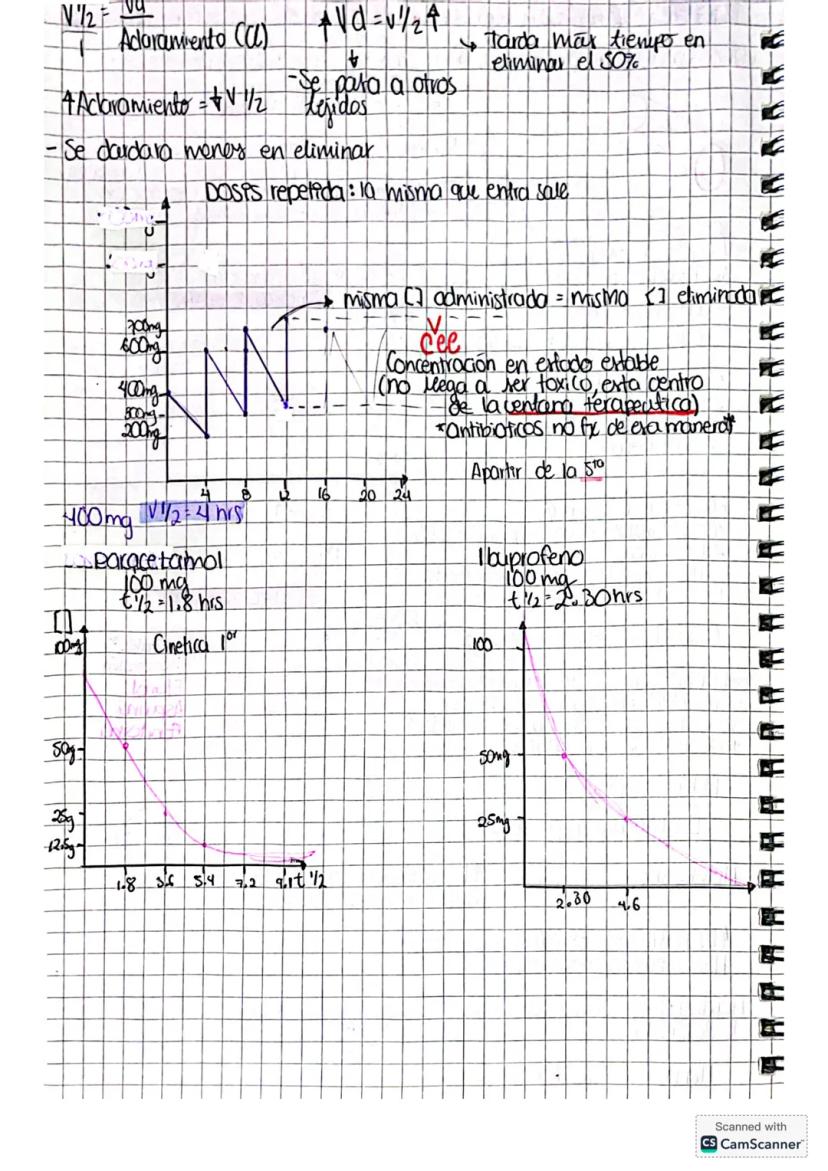 V½ = Vd
Aclaramiento (Cl)
↑Vd = V½↑
↳ Tarda más tiempo en
eliminar el 50%
- Se pasa a otros
tejidos
↑Aclaramiento = ↓V ½
- Se dardara menos en eliminar
Dosis repetida: la misma que entra sale
misma [] administrada = misma [] eliminada
Cee
Concentración en estado estable
(no llega a ser toxico, esta dentro
de la ventana terapeutica)
*Antibioticos no fx de esa manera*
Apartir de la 5ta
700mg
600mg
400mg
300mg
200mg
4 8 12 16 20 24
400mg V½ = 4 hrs
paracetamol
100 mg
t½ = 1.8 hrs
Ibuprofeno
100 mg
t½ = 2.30hrs
[]
Cinetica 1or
50g
25g
12.5g
1.8 3.6 5.4 7.2 9.1 t ½
100
50mg
25mg
2.30 4.6
Scanned with
CS CamScanner